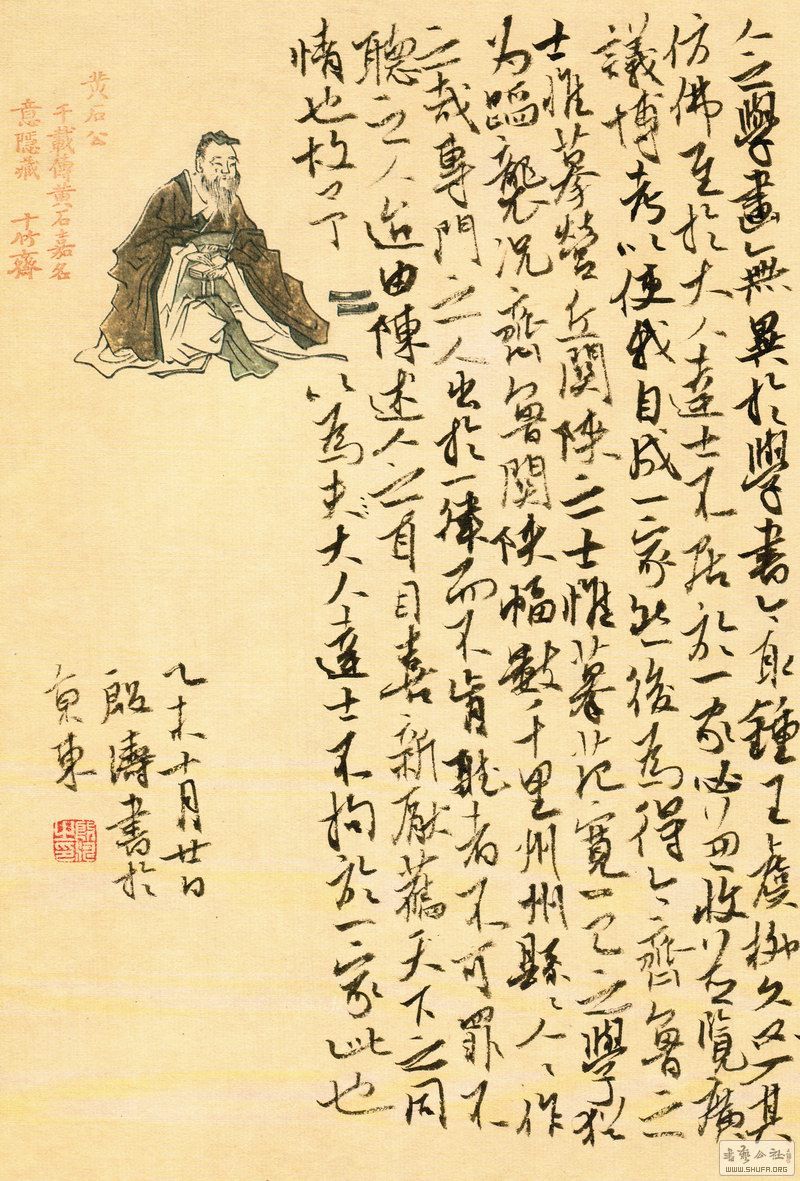 人之學畫無異於學書今取鍾王虞柳久必入其
仿佛至於大人達士不居於一家必並收並覽廣
議博考以使我自成一家然後為得今齊魯之
士惟摹營丘關陝之士惟摹范寬一己之學猶
为蹈襲況齊魯關陝幅數千里州州縣々人々作
之哉專門之人出於一律而不肯聽者不可罪不
聽之人迨由陳述人之耳目喜新厭舊天下之同
情也故予 以為夫大人達士不拘於一家此也
乙未十月廿日
殷濤書於
京東
黄石公
千載傳黄石嘉名
意隱藏 十竹齋
書藝公社
WWW.SHUFA.ORG